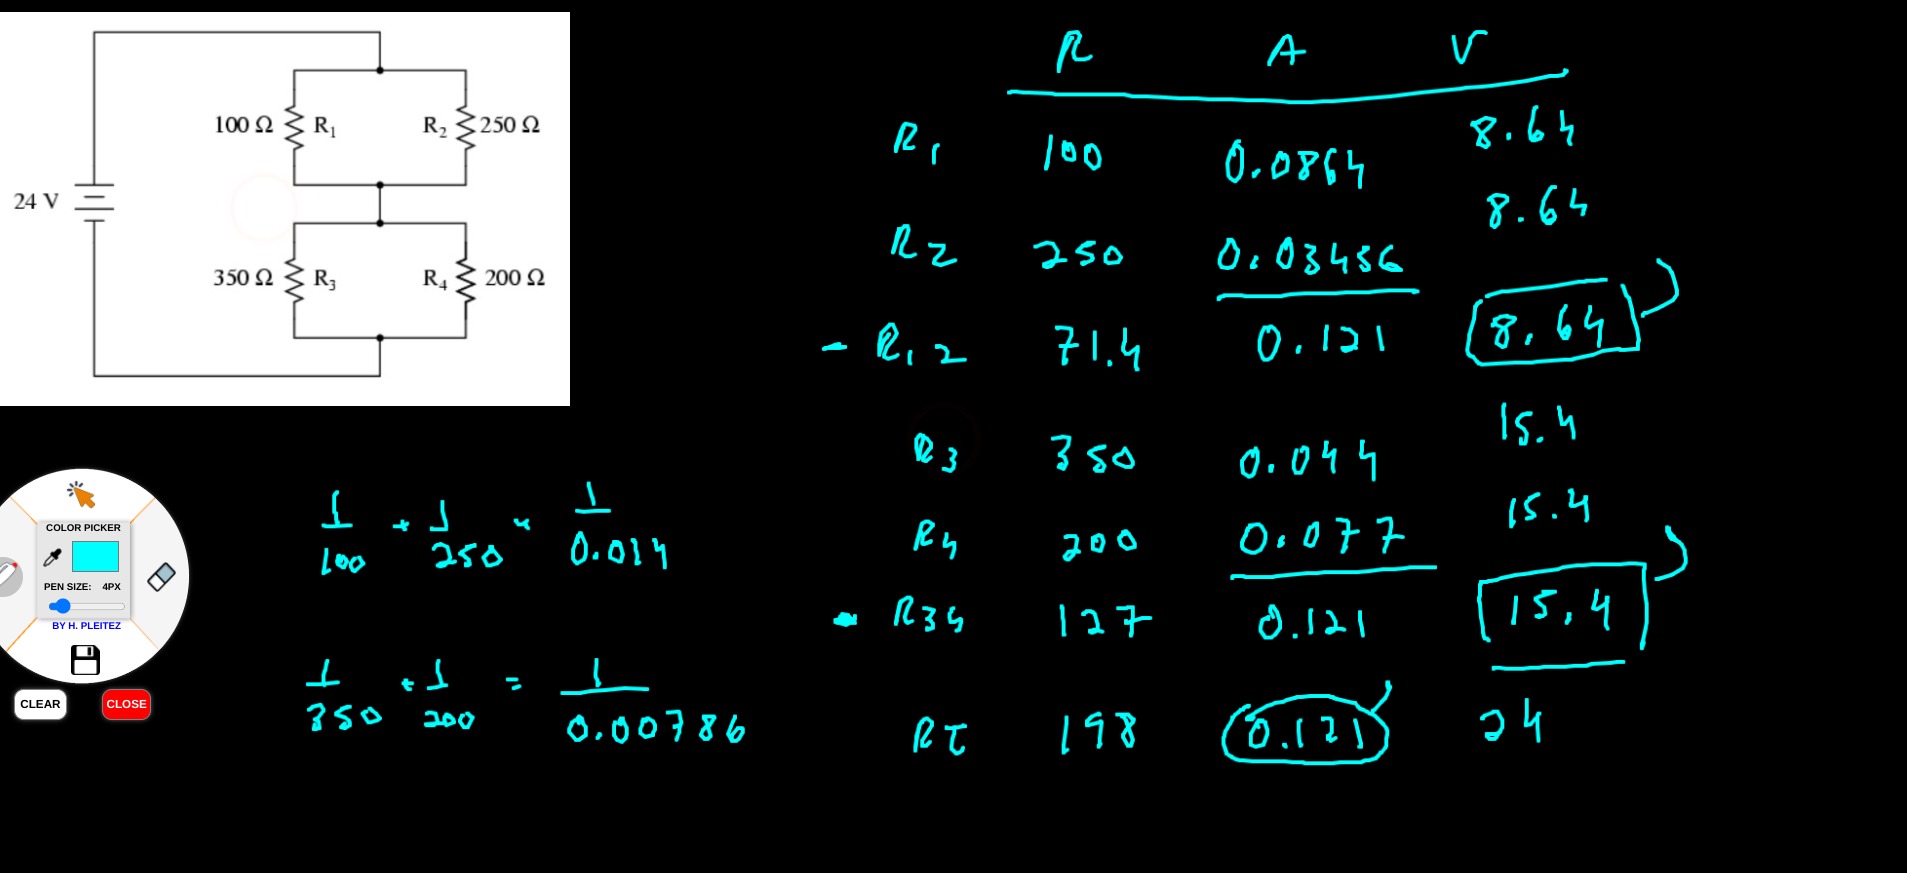 100 Ω R1 R2 250 Ω
24 V
350 Ω R3 R4 200 Ω
R A V
R1 100 0.0864 8.64
R2 250 0.03456 8.64
- R12 71.4 0.121 8.64
R3 350 0.044 15.4
R4 200 0.077 15.4
- R34 127 0.121 15.4
RT 198 0.121 24
1/100 + 1/250 = 1/0.014
1/350 + 1/200 = 1/0.00786
COLOR PICKER
PEN SIZE: 4PX
BY H. PLEITEZ
CLEAR CLOSE